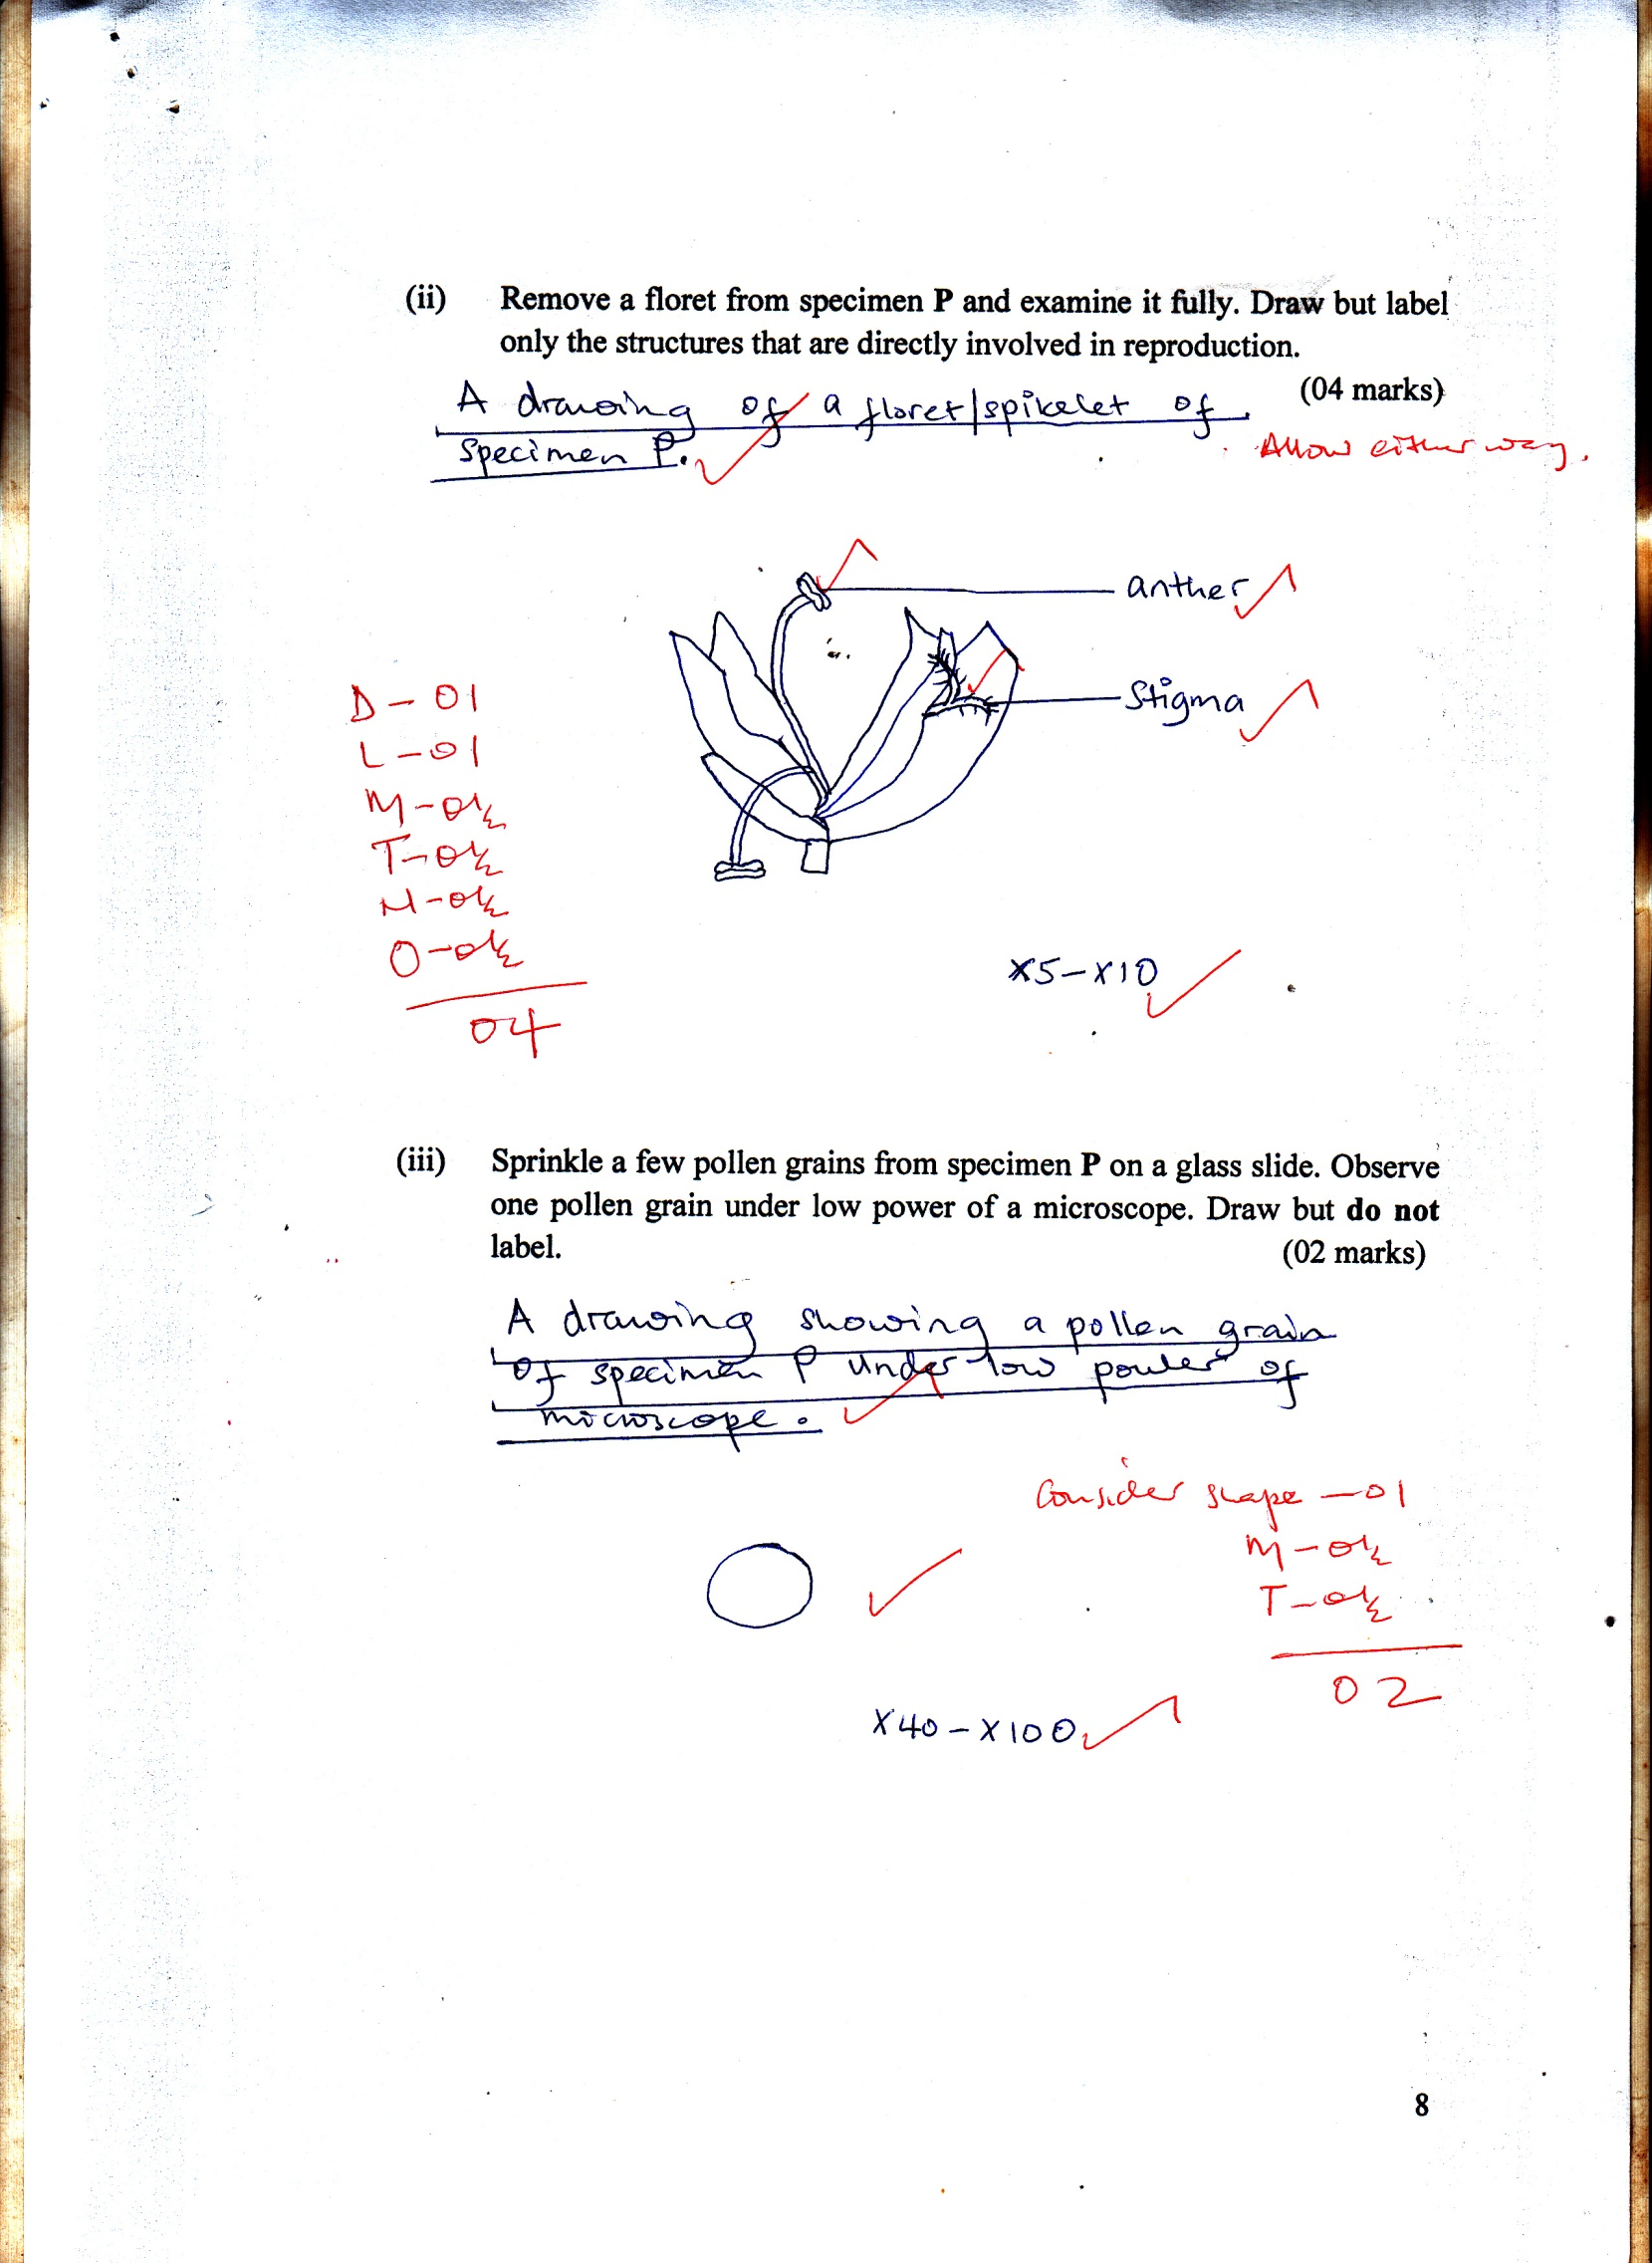 (ii) Remove a floret from specimen P and examine it fully. Draw but label
only the structures that are directly involved in reproduction.
(04 marks)
A drawing of a floret/spikelet of
specimen P.
Allow either way.
anther
Stigma
D - 01
L - 01
M - 0½
T - 0½
N - 0½
O - 0½
04
X5 - X10
(iii) Sprinkle a few pollen grains from specimen P on a glass slide. Observe
one pollen grain under low power of a microscope. Draw but do not
label. (02 marks)
A drawing showing a pollen grain
of specimen P under low power of
microscope.
Consider shape - 01
M - 0½
T - 0½
02
X40 - X100
8